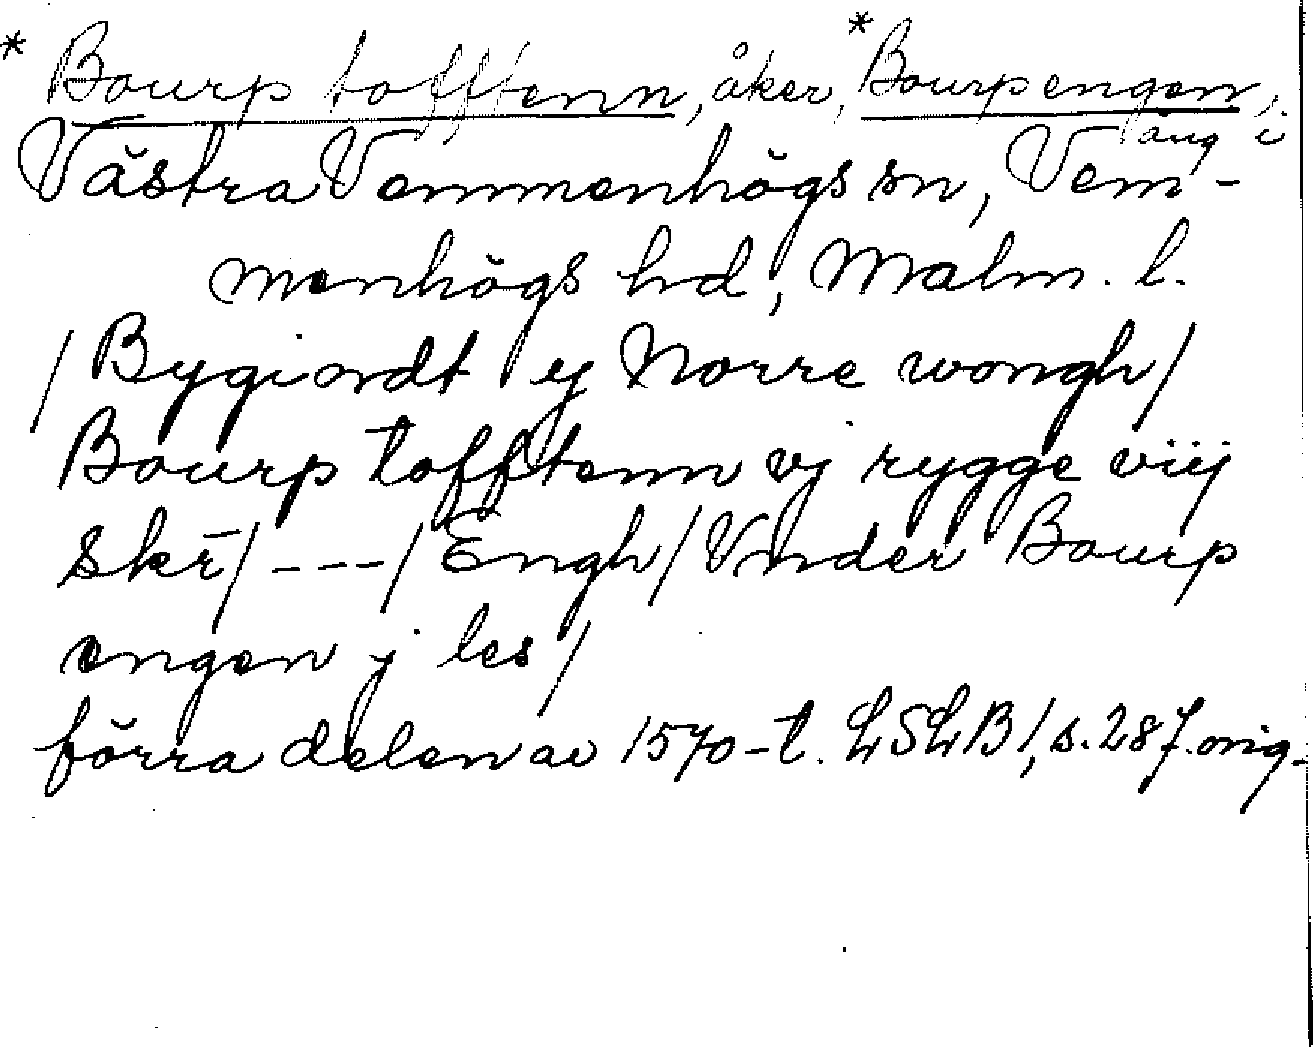 * Bourp tofftenn, åker, * Bourpengen,
äng i
Västra Vemmenhögs sn, Vem-
menhögs hd, Malm. l.
/Bygiordt ej Norre wongh/
Bourp tofftenn vj rygge viij
skr̄/---/Engh/Vnder Bourp
engen j les/
förra delen av 1570-t. LSLB1, s. 287. orig.